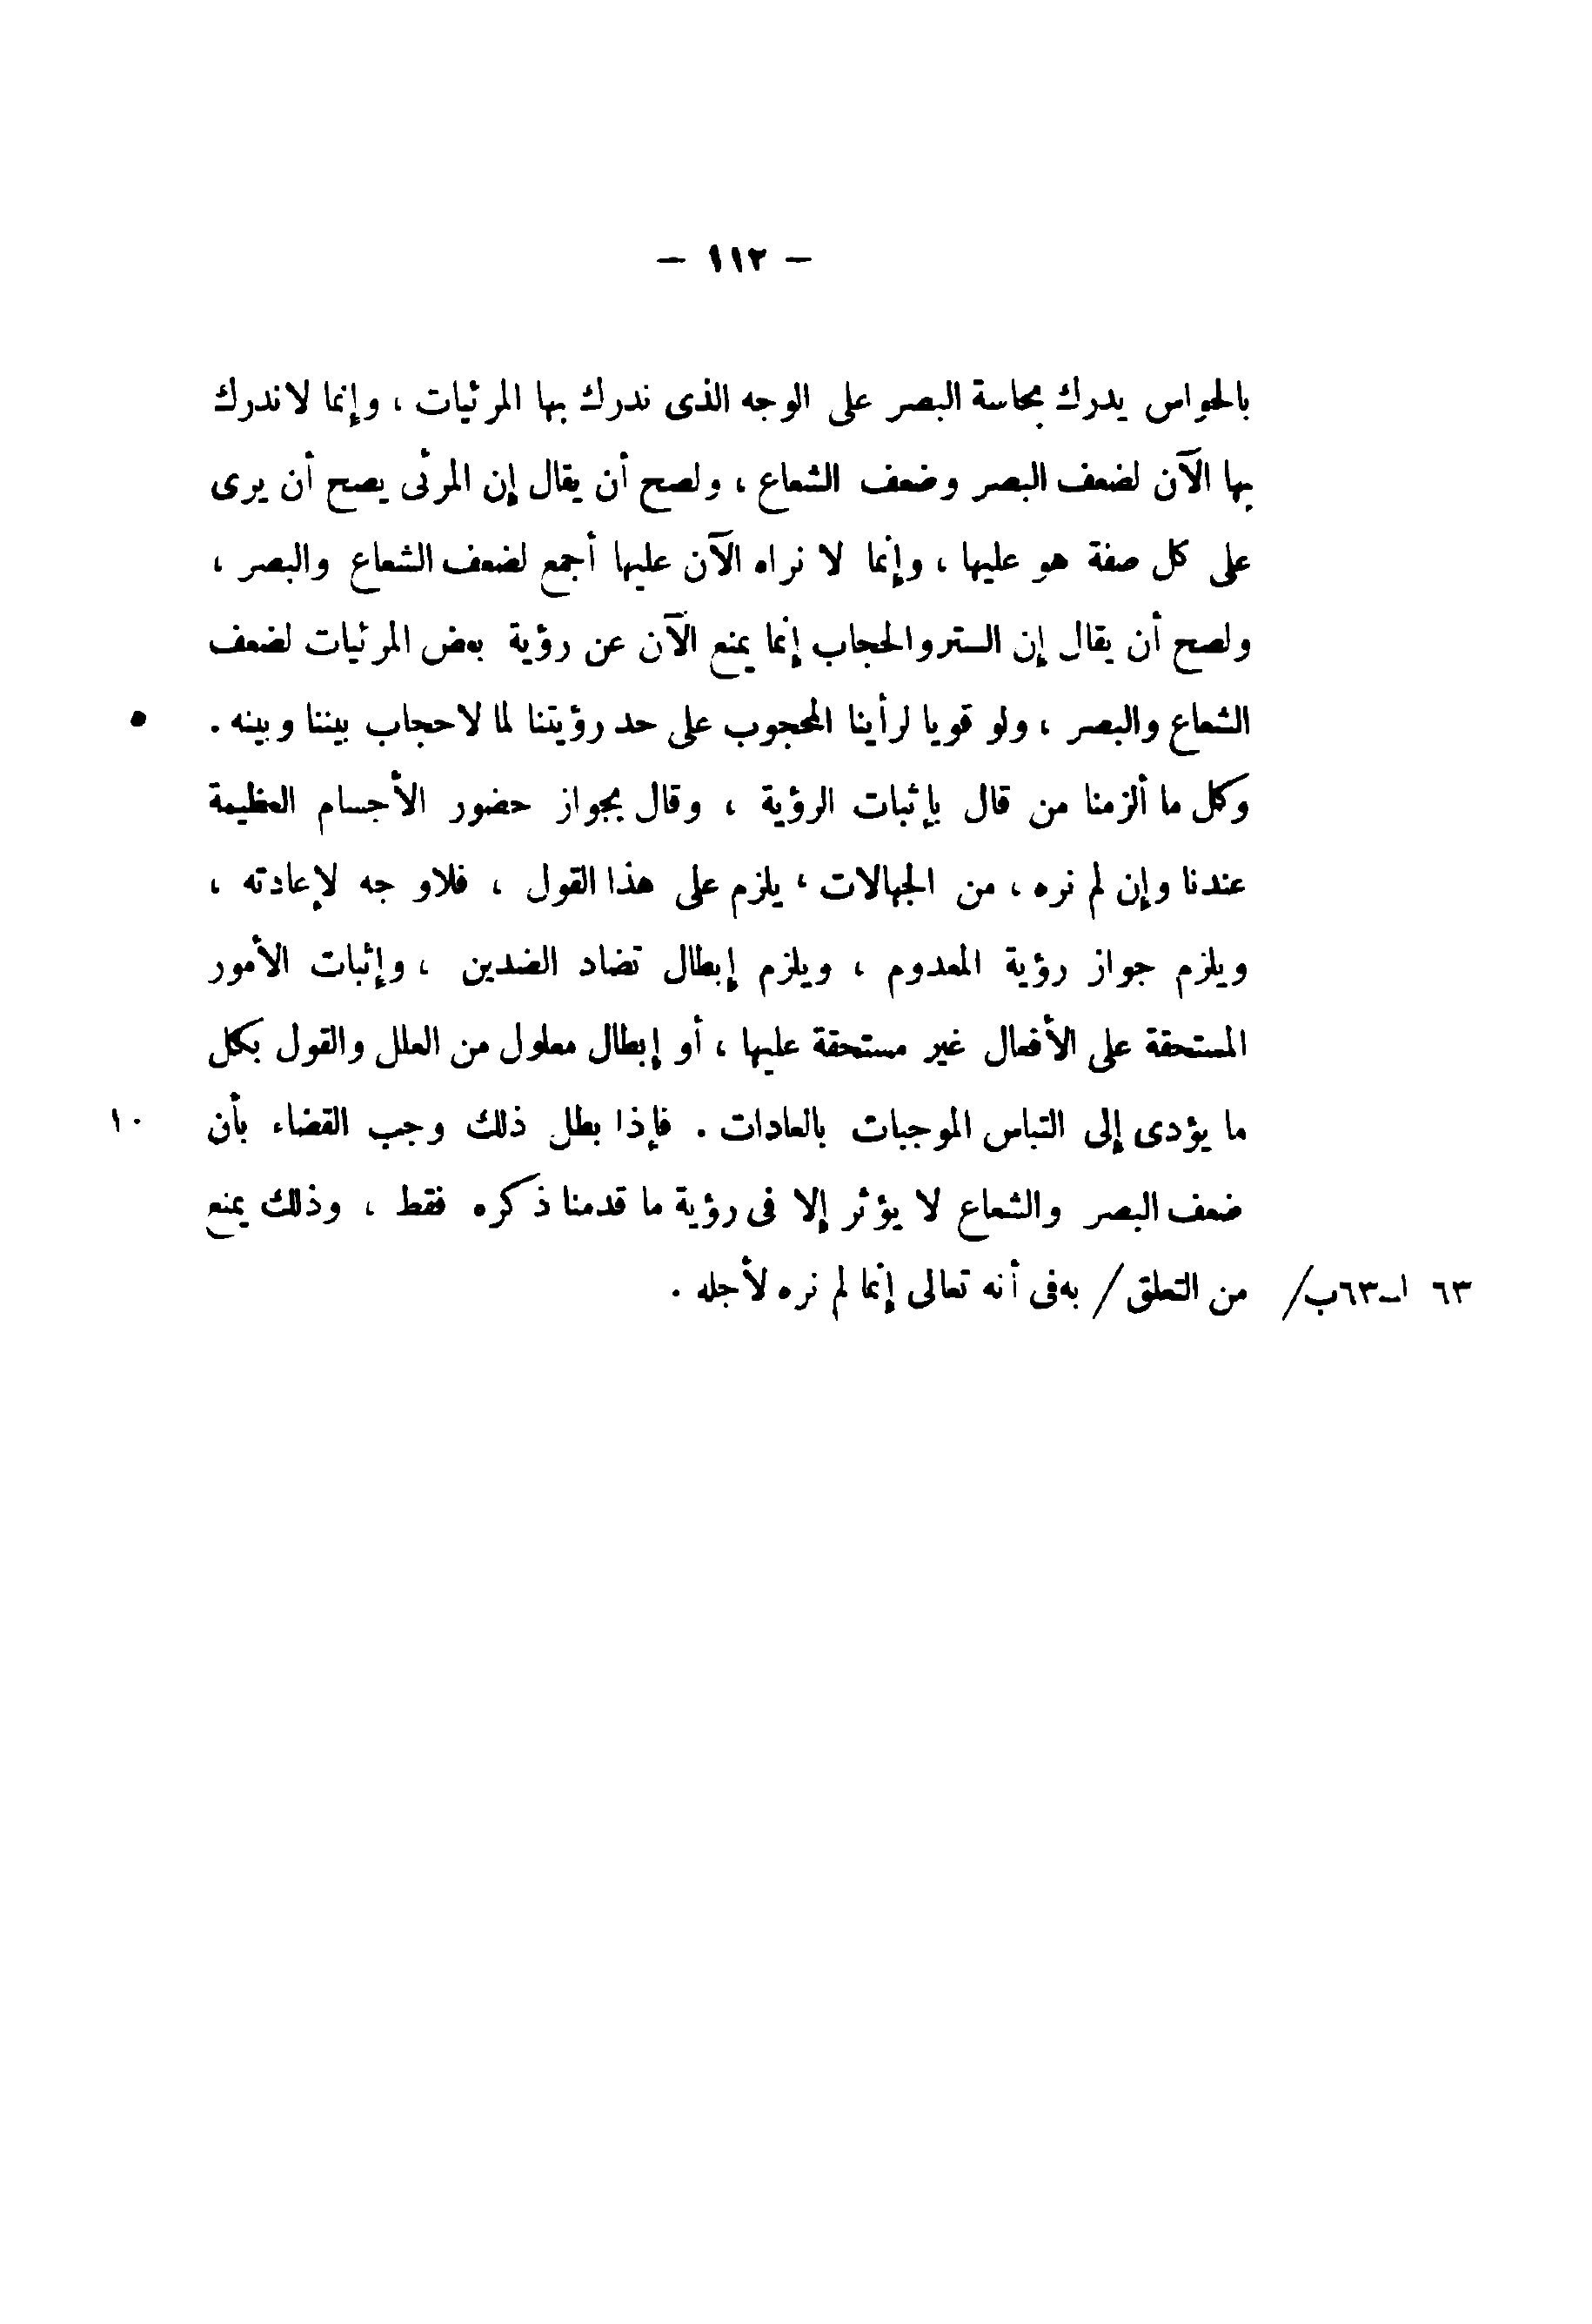 — ١١٢ —
بالحواس يدرك بحاسة البصر على الوجه الذى ندرك بها المرئيات ، وإنما لا ندرك
بها الآن لضعف البصر وضعف الشعاع ، ولصح أن يقال إن المرئى يصح أن يرى
على كل صفة هو عليها ، وإنما لا نراه الآن عليها أجمع لضعف الشعاع والبصر ،
ولصح أن يقال إن الستر والحجاب إنما يمنع الآن عن رؤية بعض المرئيات لضعف
الشعاع والبصر ، ولو قويا لرأينا المحجوب على حد رؤيتنا لما لا حجاب بيننا وبينه . ٥
وكل ما ألزمنا من قال بإثبات الرؤية ، وقال بجواز حضور الأجسام العظيمة
عندنا وإن لم نره ، من الجهالات ، يلزم على هذا القول ، فلا وجه لإعادته ،
ويلزم جواز رؤية المعدوم ، ويلزم إبطال تضاد الضدين ، وإثبات الأمور
المستحقة على الأفعال غير مستحقة عليها ، أو إبطال معلول من العلل والقول بكل
ما يؤدى إلى التباس الموجبات بالعادات . فإذا بطل ذلك وجب القضاء بأن ١٠
ضعف البصر والشعاع لا يؤثر إلا فى رؤية ما قدمنا ذكره فقط ، وذلك يمنع
٦٣ ا ـ ٦٣ب/ من التعلق / به فى أنه تعالى إنما لم نره لأجله .